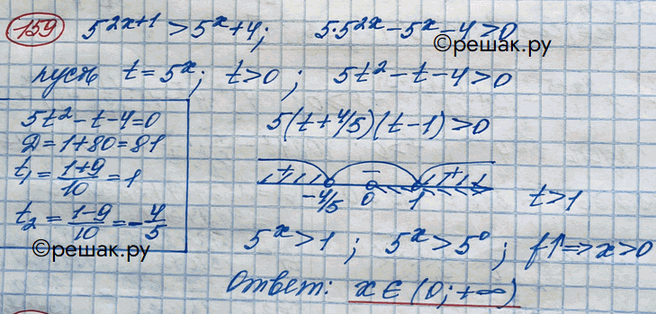 159 5^{2x+1} > 5^x + 4; 5·5^{2x} - 5^x - 4 > 0
©решак.ру
пусть t = 5^x; t > 0; 5t² - t - 4 > 0
5t² - t - 4 = 0
D = 1 + 80 = 81
t₁ = (1+9)/10 = 1
t₂ = (1-9)/10 = -4/5
©решак.ру
5(t + 4/5)(t - 1) > 0
+ - +
-4/5 0 1 t > 1
5^x > 1; 5^x > 5^0; f↑ => x > 0
Ответ: x ∈ (0; +∞)